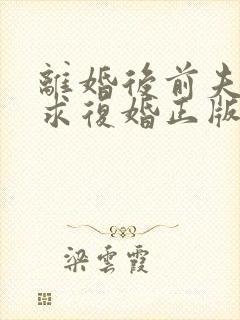 離婚後前夫
求復婚正版
梁雲霞